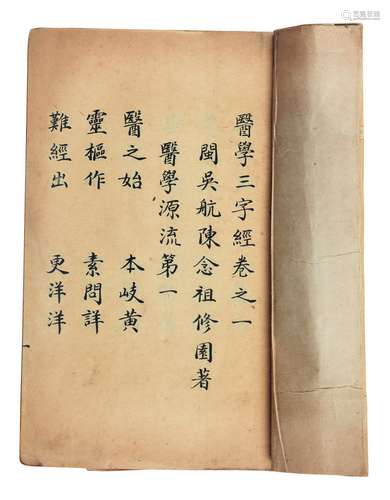 醫學三字經卷之一
閩吳航陳念祖修園著
醫學源流第一
醫之始 本岐黃
靈樞作 素問詳
難經出 更洋洋